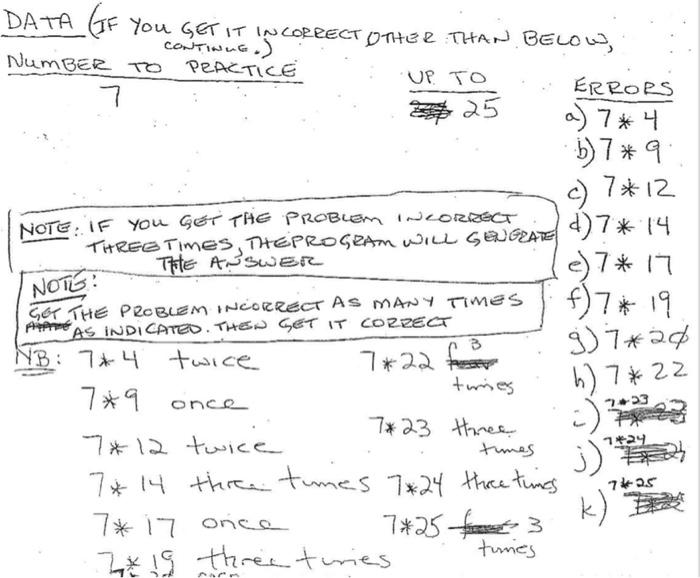 DATA (IF YOU GET IT INCORRECT OTHER THAN BELOW,
CONTINUE.)
NUMBER TO PRACTICE
7
UP TO
25
ERRORS
a) 7*4
b) 7*9
c) 7*12
d) 7*14
e) 7*17
f) 7*19
g) 7*20
h) 7*22
i) 7*23
j) 7*24
k) 7*25
NOTE: IF YOU GET THE PROBLEM INCORRECT
THREE TIMES, THE PROGRAM WILL GENERATE
THE ANSWER
NOTE:
GET THE PROBLEM INCORRECT AS MANY TIMES
AS INDICATED. THEN GET IT CORRECT
NB: 7*4 twice
7*9 once
7*12 twice
7*14 three times
7*17 once
7*19 three times
7*22 3
times
7*23 three
times
7*24 three times
7*25 3
times